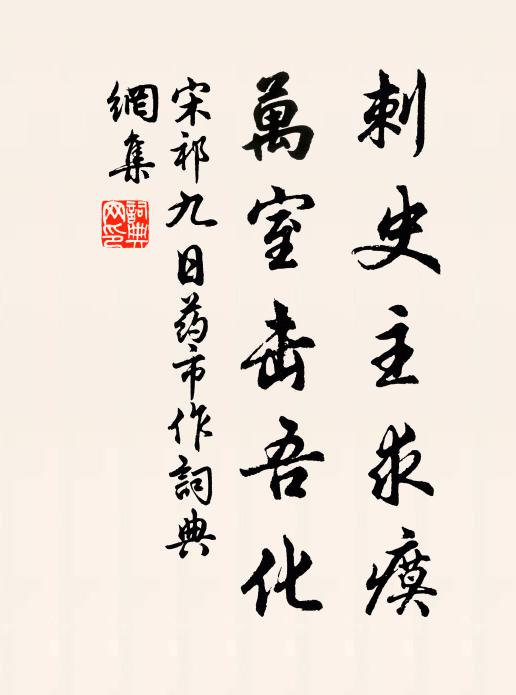 刺史主求瘼
萬室击吾化
宋祁九日药市作詞典
網集
詞典
网印